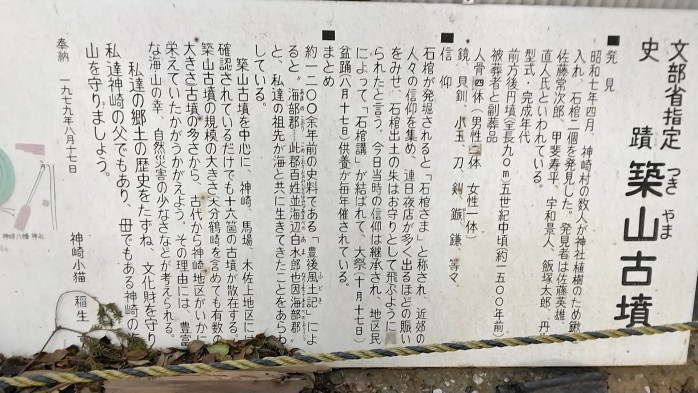 文部省指定
史蹟 築山古墳
つき やま
■発見
昭和七年四月、神崎村の数人が神社植樹のため鍬
入れ、石棺二個を発見した。発見者は佐藤英雄
佐藤常次郎、甲斐寿平、宇和景人、飯塚太郎、丹
直人氏といわれている。
型式・完成年代
前方後円墳(全長九〇m)五世紀中頃(約一五〇〇年前)
被葬者と副葬品
人骨四体(男性 体 女性一体)
鏡、貝釧、小玉、刀、剣、鏃、鎌、等々
■信仰
石棺が発掘されると「石棺さま」と称され、近郊の
人々の信仰を集め、連日夜店が多く出るほどの賑い
をみせ、石棺出土の朱はお守りとして飛ぶように
られたと言う。今日当時の信仰は継承され、地区民
によって「石棺講」が結ばれて、大祭(十月十七日)
盆踊(八月十七日)供養が毎年催されている。
■まとめ
約一二〇〇余年前の史料である「豊後風土記」によ
ると。海部郡「此郡百姓並海辺白水郎也因海部郡」
と、私達の祖先が海と共に生きてきたことをあらわ
している。
築山古墳を中心に、神崎、馬場、木佐上地区には
確認されているだけでも十六箇の古墳が散在する。
築山古墳の規模の大きさ(大分鶴崎を含めても有数の
大きさ)古墳の多さから、古代から神崎地区がいかに
栄えていたかがうかがえよう。その理由には、豊富
な海山の幸、自然災害の少なさなどが考えられる。
私達の郷土の歴史をたずね、文化財を守り
私達神崎の父でもあり、母でもある神崎の
山を守りましょう。
奉納 一九七九年八月十七日
神崎小猫 稲生
神崎八幡神社